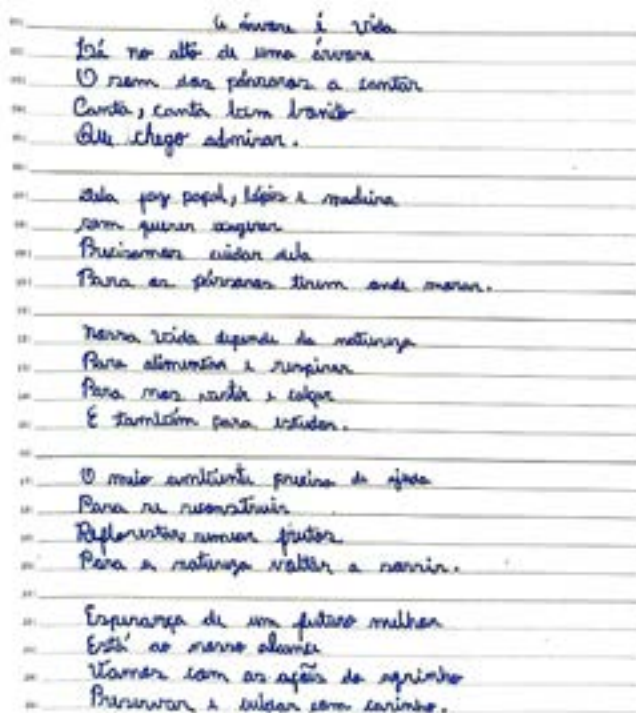 A árvore é vida
Lá no alto de uma árvore
O som dos pássaros a cantar
Canta, canta bem bonito
Que chego admirar.
Dela faz papel, lápis e madeira
sem querer exagerar
Precisamos cuidar dela
Para os pássaros terem onde morar.
Nossa vida depende da natureza
Para alimentar e respirar
Para nos vestir e calçar
E também para estudar.
O meio ambiente precisa de ajuda
Para se reconstruir
Reflorestar, semear frutos
Para a natureza voltar a sorrir.
Esperança de um futuro melhor
Está ao nosso alcance
Vamos com as ações do agrinho
Preservar e cuidar com carinho.